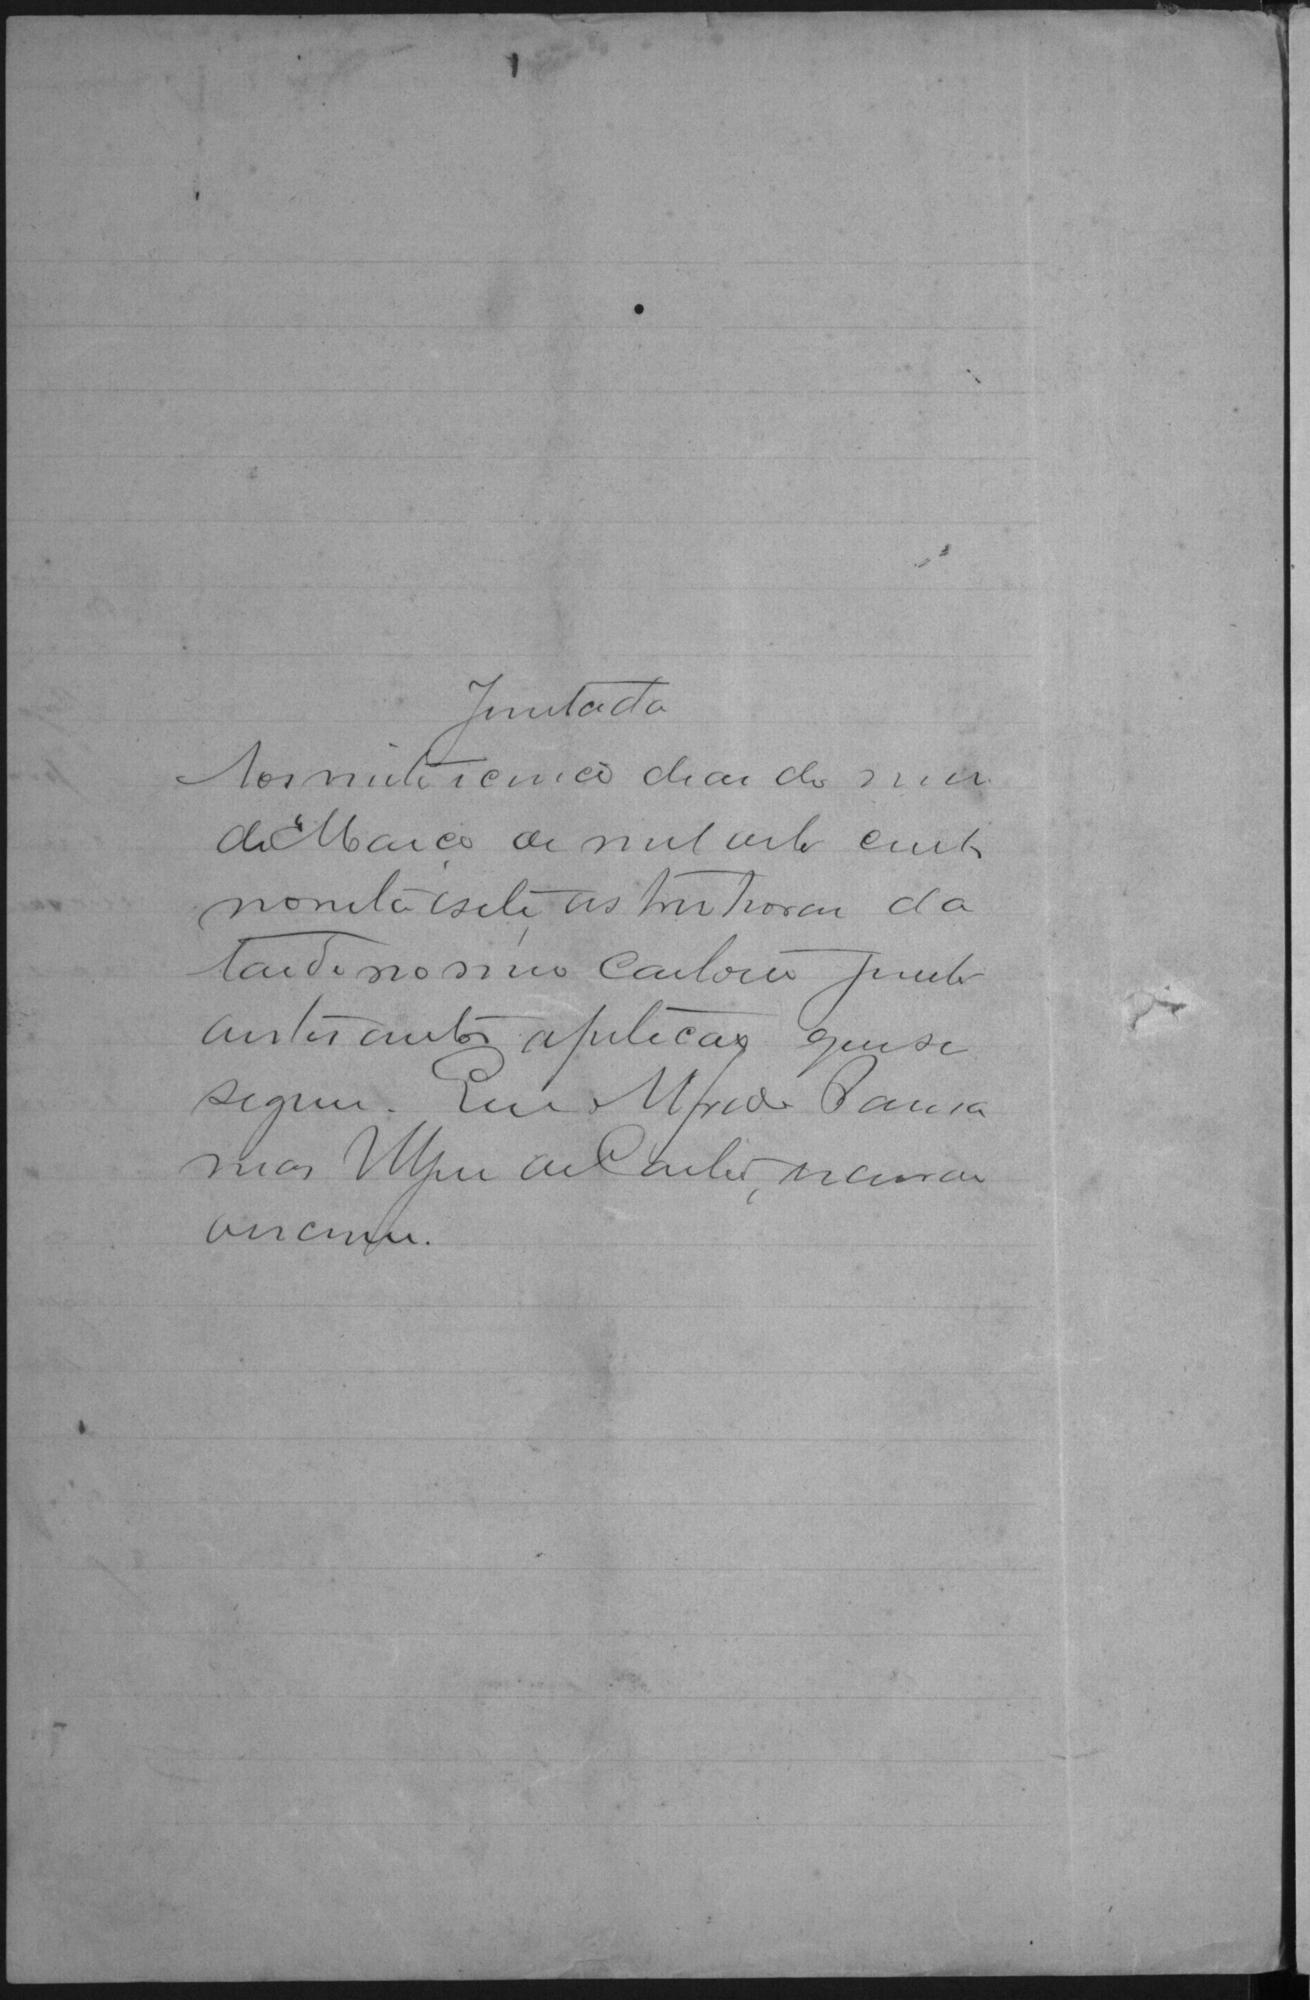 Juntada
Aos vinte e cinco dias do mez
de Março de mil oito centos
noventa e sete, as tres horas da
tarde no meu Cartorio junto
a estes autos a petição que se
segue. Eu Alfredo
de, escrivão
escrevi.